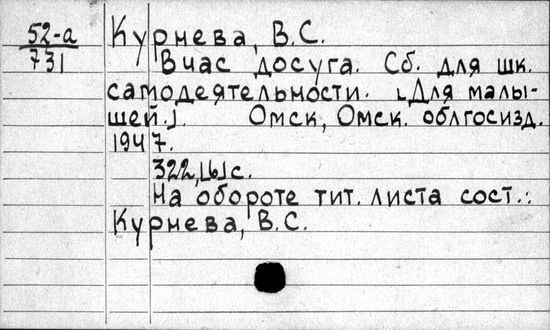 52-а
731
Курнева, В.С.
В час досуга. Сб. для шк.
самодеятельности. [Для малы-
шей.]. Омск, Омск. облгосизд.
1947.
322,[6]с.
На обороте тит. листа сост.:
Курнева, В.С.